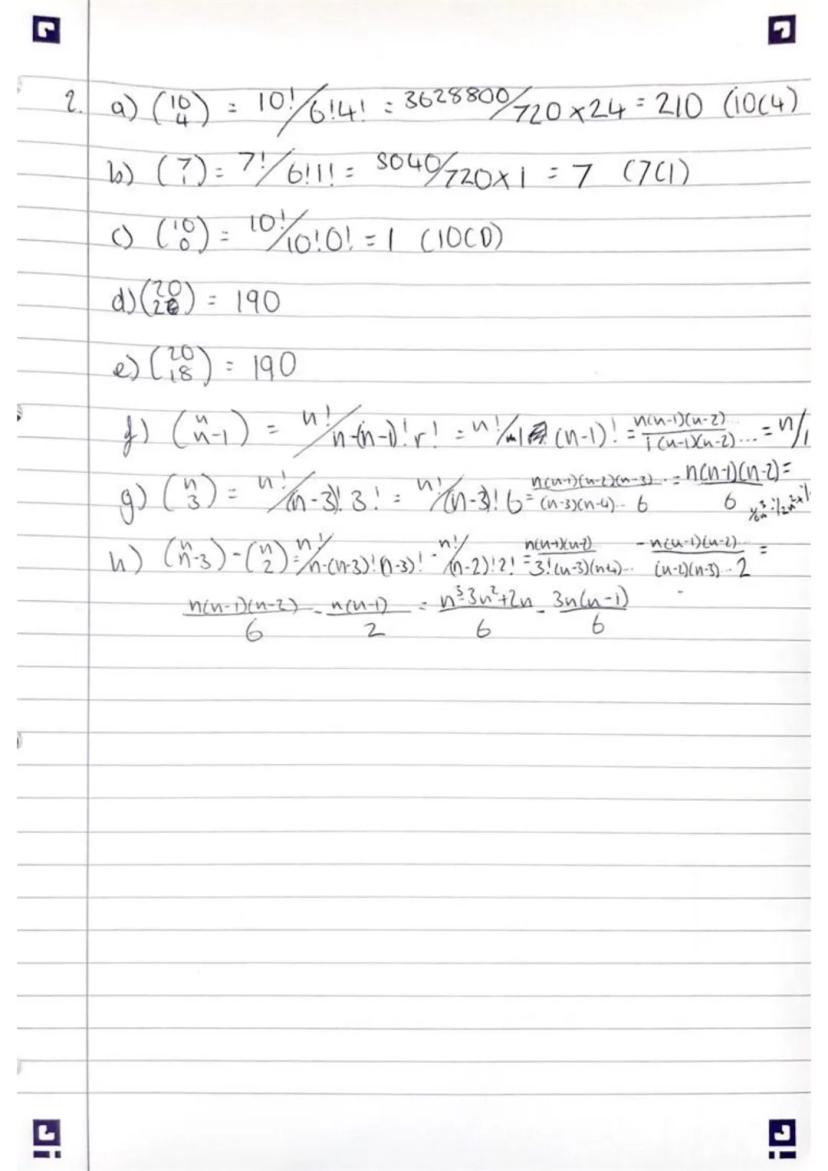 2. a) (10 4) = 10!/6!4! = 3628800/720×24 = 210 (10C4)
b) (7 1) = 7!/6!1! = 5040/720×1 = 7 (7C1)
c) (10 0) = 10!/10!0! = 1 (10C0)
d) (20 2) = 190
e) (20 18) = 190
f) (n n-1) = n!/n-(n-1)!r! = n!/1 (n-1)! = n(n-1)(n-2).../1(n-1)(n-2)... = n/1
g) (n 3) = n!/(n-3)!3! = n!/(n-3)!6 = n(n-1)(n-2)(n-3).../(n-3)(n-4)..6 = n(n-1)(n-2)/6 =
h) (n n-3) - (n 2) = n!/n-(n-3)!(n-3)! - n!/(n-2)!2! = n(n-1)(n-2)/3!(n-3)(n-4).. - n(n-1)(n-2)../(n-2)(n-3)..2 =
n(n-1)(n-2)/6 - n(n-1)/2 = n³-3n²+2n/6 - 3n(n-1)/6